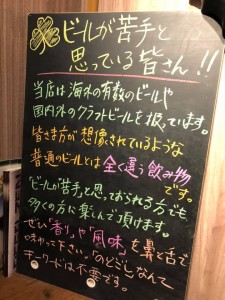 ビールが苦手と
思っている皆さん!!
当店は海外の有数のビールや
国内外のクラフトビールを扱っています。
皆さま方が想像されているような
普通のビールとは全く違う飲み物
です。
「ビールが苦手」と思っておられる方でも
多くの方に楽しんで頂けます。
ぜひ「香り」や「風味」を鼻と舌で
味わって下さい。「のどごし」なんて
キーワードは不要です。